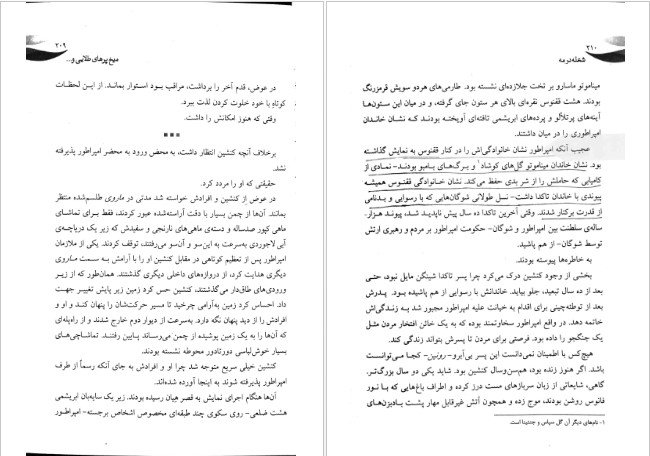 ۲۰۹
میخ‌پرهای طلایی و...
در عوض، قدم آخر را برداشت، مراقب بود استوار بماند. از این لحظات
کوتاهِ با خود خلوت کردن لذت ببرد.
وقتی که هنوز امکانش را داشت.
برخلاف آنچه کنشین انتظار داشت، به محض ورود به محضر امپراطور پذیرفته
نشد.
حقیقتی که او را مردد کرد.
در عوض از کنشین و افرادش خواسته شد مدتی در ماروی طلسم‌شده منتظر
بمانند. آن‌ها از چمن بسیار با دقت آراسته‌شده عبور کردند، فقط برای تماشای
ماهی کپور صدساله و دسته‌ی ماهی‌های نارنجی و سفیدش که زیر یک دریاچه‌ی
آبی لاجوردی به‌سرعت به این‌سو و آن‌سو می‌رفتند، توقف کردند. یکی از ملازمان
امپراطور پس از تعظیم کوتاهی در مقابل کنشین او را با آرامش به سمت ماروی
دیگری هدایت کرد، از دروازه‌های داخلی دیگری گذشتند. همان‌طور که از زیر
ورودی‌های طاق‌دار می‌گذشتند، کنشین حس کرد زمین زیر پایش تغییر جهت
داد. احساس کرد زمین به‌آرامی چرخید تا مسیر حرکت‌شان را پنهان کند و او و
افرادش را از دید پنهان نگه دارد. به‌سرعت از دیوار دوم خارج شدند و از راه‌پله‌ای
که آن‌ها را به یک زمین پوشیده از چمن می‌رساند پایین رفتند. تماشاچی‌های
بسیار خوش‌لباسی دورتادور محوطه نشسته بودند.
کنشین خیلی سریع متوجه شد چرا او و افرادش به جای آنکه رسماً از طرف
امپراطور پذیرفته شوند به اینجا آورده شده‌اند.
آن‌ها هنگام اجرای نمایش به قصر هیان رسیده بودند. زیر یک سایه‌بان ابریشمی
هشت ضلعی- روی سکوی چند طبقه‌ای مخصوص اشخاص برجسته- امپراطور
۲۱۰
شعله در مه
میناموتو ماسارو بر تخت جلازده‌ای نشسته بود. طارمی‌های هر دو سویش قرمزرنگ
بودند. هشت ققنوس نقره‌ای بالای هر ستون جای گرفته، و در میان این ستون‌ها
آینه‌های پرتلألو و پرده‌های ابریشمی تافته‌ای آویخته بودند کـه نشـان خانـدان
امپراطوری را در میان داشتند.
عجیب آنکه امپراطور نشان خانوادگی‌اش را در کنار ققنوس به نمایش گذاشته
بود. نشان خاندان میناموتو گل‌های کوشاد۱ و برگ‌های بامبو بودند- نمادی از
کامیابی که حاملش را از شر بدی حفظ می‌کند. نشان خانوادگی ققنوس همیشه
پیوندی با خاندان تاکدا داشت- نسل طولانی شوگان‌هایی که با رسوایی و بدنامی
از قدرت برکنار شدند. وقتی آخرین تاکدا ده سال پیش ناپدید شد، پیوند هزار
ساله‌ی سلطنت بین امپراطور و شوگان- حکومت امپراطور بر مردم و رهبری ارتش
توسط شوگان- از هم پاشید.
به خاطره‌ها پیوسته بودند.
بخشی از وجود کنشین درک می‌کرد چرا پسر تاکدا شینگن مایل نبود، حتـی
بعد از ده سال تبعید، جلو بیاید. خاندانش با رسوایی از هم پاشیده بـود. پـدرش
بعد از توطئه‌چینی برای اقدام به خیانت علیه امپراطور مجبور شد بـه زنـدگی‌اش
خاتمه دهد. در واقع امپراطور سخاوتمند بوده که به یک خائن افتخار مردن مثل
یک جنگجو را داده بود. فرصتی برای مردن تا پسرش بتواند زندگی کند.
هیچ‌کس با اطمینان نمی‌دانست این پسر بی‌آبرو -رونین- کجـا مـی‌توانست
باشد. اگر هنوز زنده بود، هم‌سن‌وسال کنشین بود. شاید یکی دو سال بزرگ‌تر.
گاهی، شایعاتی از زبان سربازهای مست درز کرده و اطراف باغ‌هایی که با نـور
فانوس روشن بودند، موج زده و همچون آتش غیرقابل مهار پشت بادبزن‌های
۱- نام‌های دیگر آن گل سپاس و جنتیانا است.